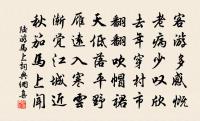 客游多感慨
老病少叹欣
去年穿村市
翻翻吹帽裙
天低落平野
雁远入寒云
渐觉江城近
秋茄马上闻
陆游马上词典网喜